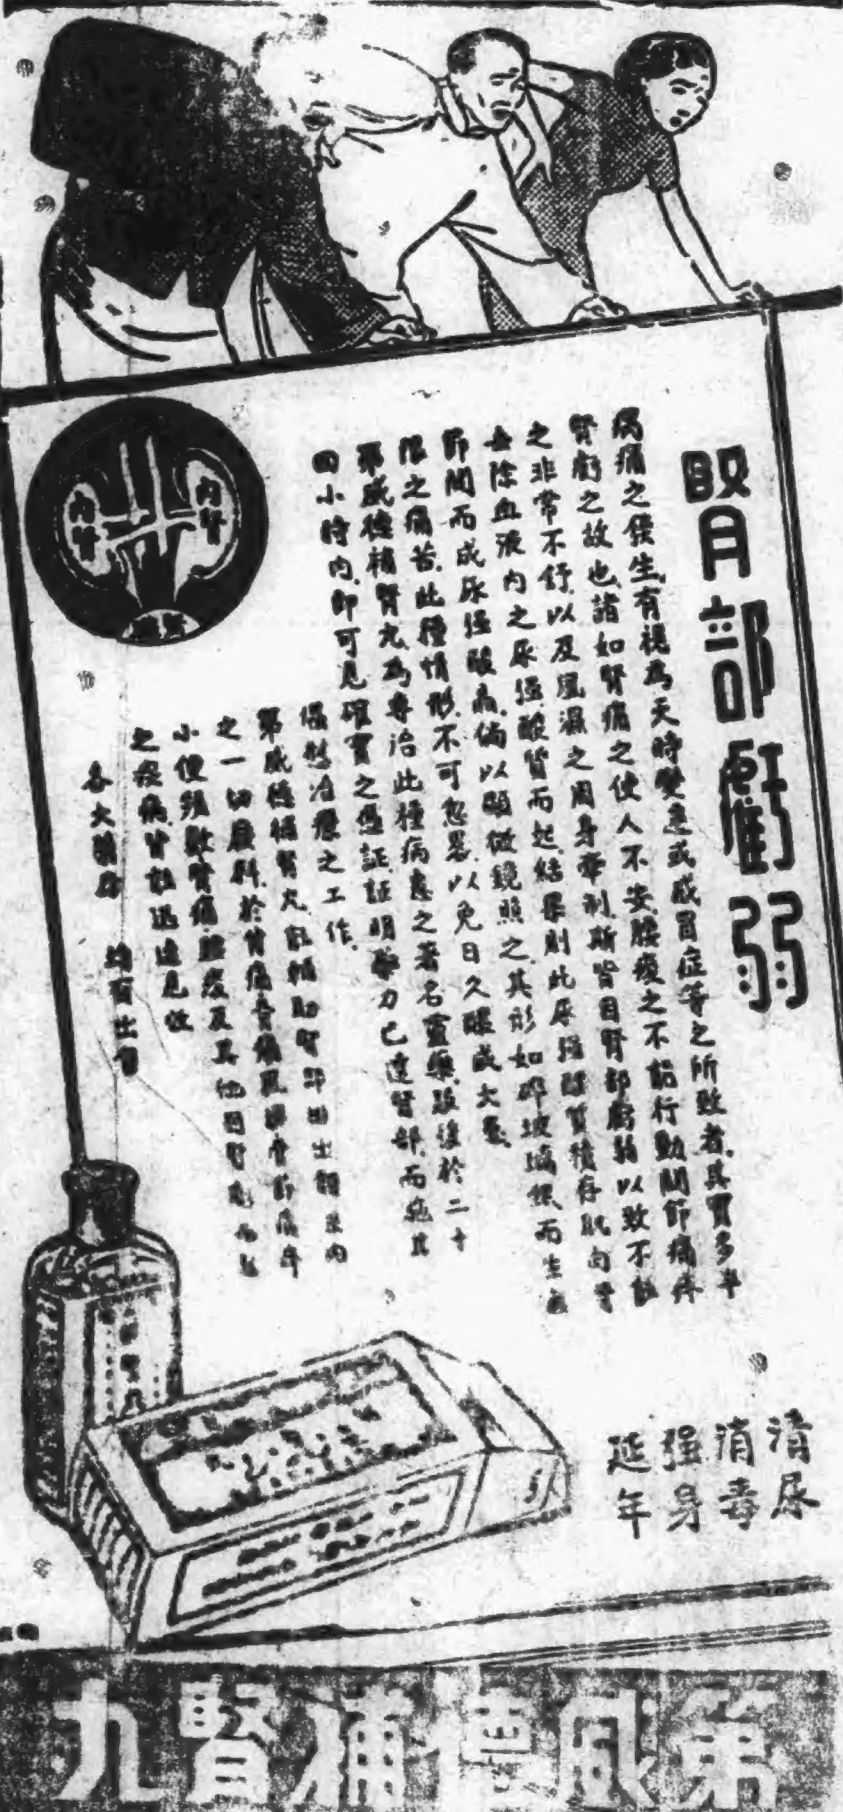 腎部虧弱
病痛之發生,有視為天時變遷或感冒症等之所致者,其實多半
腎虧之故也,諸如腎痛之使人不安腰痠之不能行動關節痛疼
之非常不舒,以及風濕之周身牽制,斯皆因腎部虧弱以致不能
去除血液內之尿强酸質而起,結果則此尿强酸質積存肌肉骨
節間而成尿强酸晶,倘以顯微鏡照之,其形如碎玻璃然,而生無
限之痛苦,此種情形,不可忽畧,以免日久釀成大患,
第威德補腎丸,為專治此種病患之著名靈藥,服後於二十
四小時內,即可見確實之憑証,証明藥力已達腎部,而施其
治療之工作,
第威德補腎丸,能輔助腎部排出體內
之一切廢料,於背痛骨痛風濕骨節痛
小便頻數腎痛腰痠及其他因腎虧而起
之疾病,皆能迅速見效
各大藥房 均有出售
內腎
內腎
清尿
消毒
强身
延年
第威德補腎丸